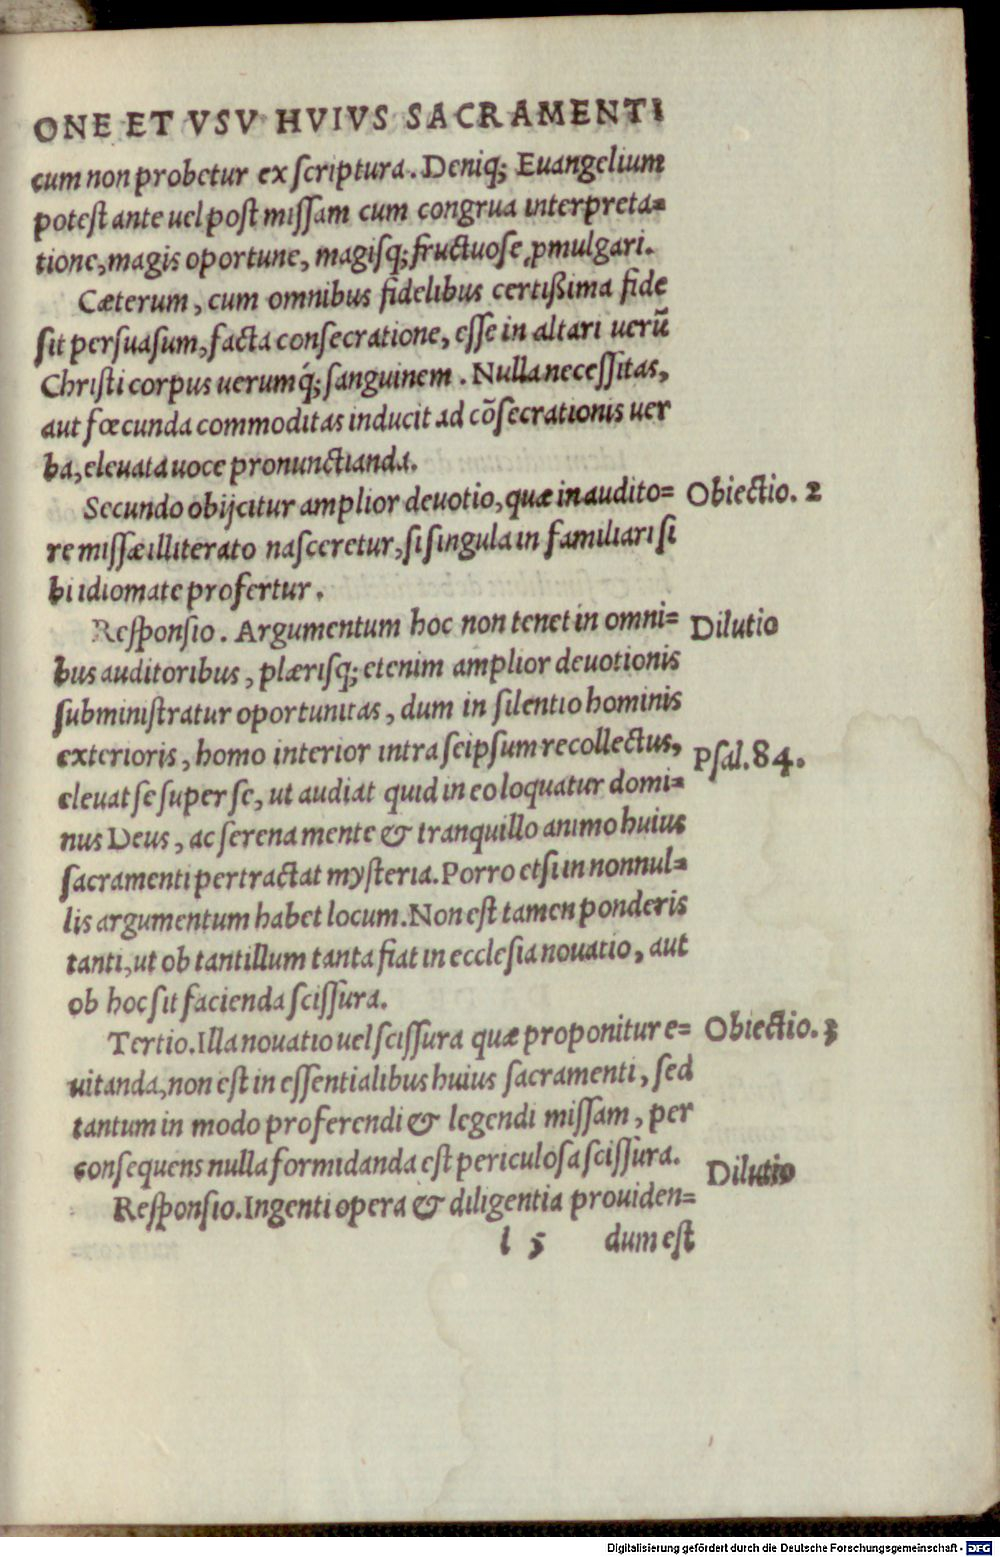 ONE ET VSV HVIVS SACRAMENTI
cum non probetur ex ſcriptura. Deniq; Euangelium
poteſt ante uel poſt miſſam cum congrua interpreta=
tione, magis oportune, magiſq; fructuoſe ꝓmulgari.
Cæterum, cum omnibus fidelibus certißima fide
ſit perſuaſum, facta conſecratione, eſſe in altari uerũ
Chriſti corpus uerumq́; ſanguinem. Nulla neceſſitas,
aut fœcunda commoditas inducit ad cõſecrationis uer
ba, eleuata uoce pronunctianda.
Secundo obijcitur amplior deuotio, quæ in audito=
re miſſæ illiterato naſceretur, ſi ſingula in familiari ſi
bi idiomate profertur.
Obiectio. 2
Reſponſio. Argumentum hoc non tenet in omni=
bus auditoribus, plæriſq; etenim amplior deuotionis
ſubminiſtratur oportunitas, dum in ſilentio hominis
exterioris, homo interior intra ſeipſum recollectus,
eleuat ſe ſuper ſe, ut audiat quid in eo loquatur domi=
nus Deus, ac ſerena mente & tranquillo animo huius
ſacramenti pertractat myſteria. Porro etſi in nonnul=
lis argumentum habet locum. Non eſt tamen ponderis
tanti, ut ob tantillum tanta fiat in eccleſia nouatio, aut
ob hoc ſit facienda ſciſſura.
Dilutio
Pſal. 84.
Tertio. Illa nouatio uel ſciſſura quæ proponitur e=
uitanda, non eſt in eſſentialibus huius ſacramenti, ſed
tantum in modo proferendi & legendi miſſam, per
conſequens nulla formidanda eſt periculoſa ſciſſura.
Obiectio. 3
Reſponſio. Ingenti opera & diligentia prouiden=
Dilutio
l 5 dum eſt
Digitalisierung gefördert durch die Deutsche Forschungsgemeinschaft - DFG